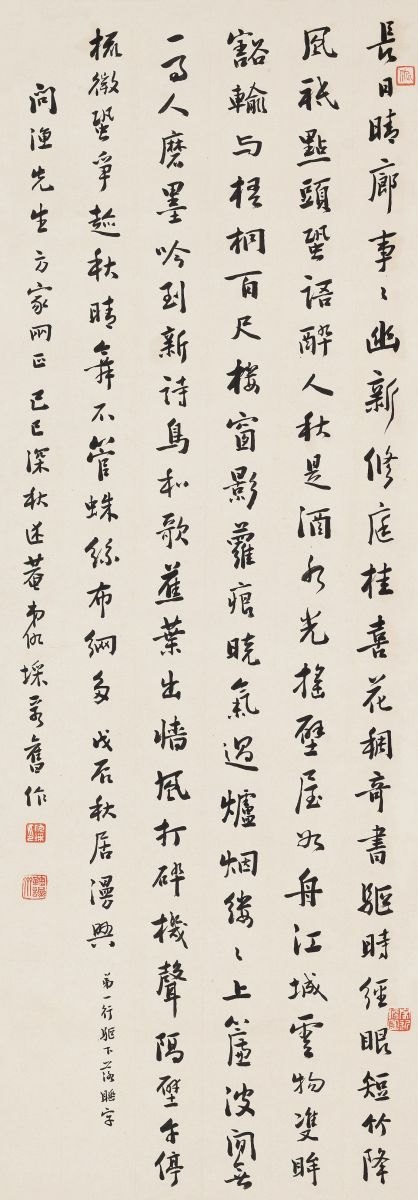 長日晴廊事々幽新修庭桂喜花稠奇書驅時經眼短竹降
風祇點頭蛩語醉人秋是酒水光搖壁屋如舟江城雲物雙眸
豁輸与梧桐百尺樓窗影蘿痕曉氣過爐烟縷々上簾波閒無
一事人磨墨吟到新詩鳥和歌蕉葉出墻風打碎機聲隔壁午停
梭微蛩爭趁秋晴舞不管蛛絲布網多 戊辰秋居漫興
第一行驅下落睡字
問漁先生方家兩正 己巳深秋述菴弟仇埰書舊作